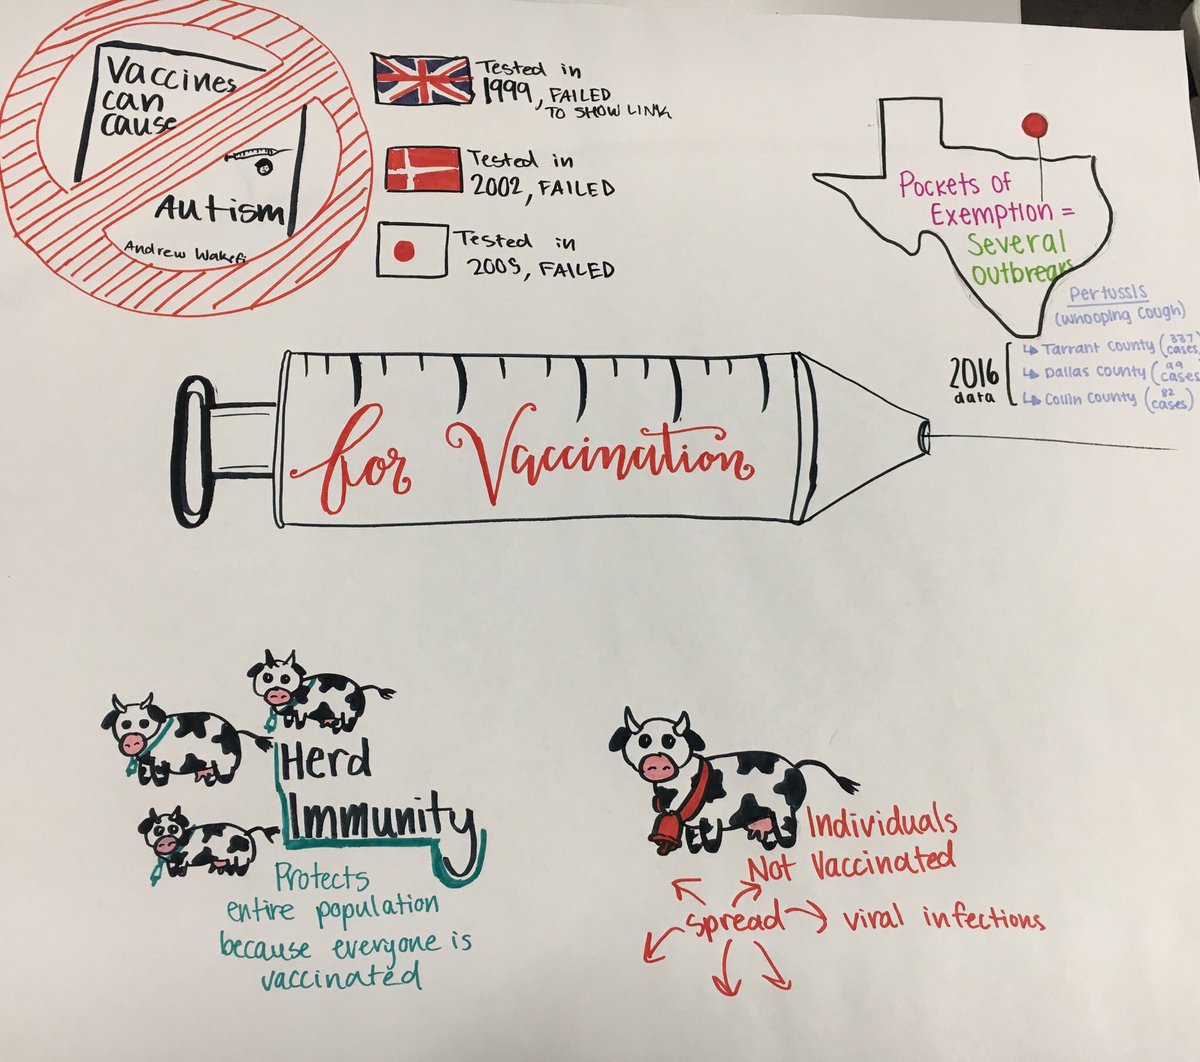 Vaccines
can
cause
Autism
Andrew Wakefi
Tested in
1999, FAILED
TO SHOW LINK
Tested in
2002, FAILED
Tested in
2005, FAILED
Pockets of
Exemption =
Several
outbreaks
Pertussis
(whooping cough)
2016
data
↳ Tarrant county (337 cases)
↳ Dallas county (99 cases
↳ Collin county (82 cases)
for Vaccination
Herd
Immunity
Protects
entire population
because everyone is
vaccinated
Individuals
Not Vaccinated
spread → viral infections